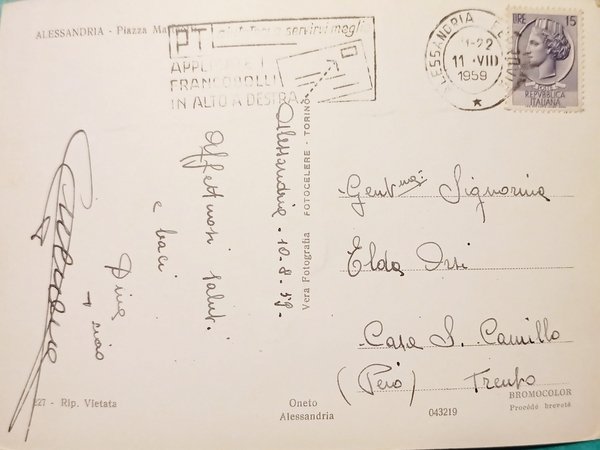 ALESSANDRIA - Piazza
PTT aiutateci a servirvi meglio
APPLICATE I
FRANCOBOLLI
IN ALTO A DESTRA
ALESSANDRIA
11 · VIII
1959
LIRE 15
REPVBBLICA
ITALIANA
Alessandria - 10-8-59-
Affettuosi saluti
e baci
Dina
+ ciao
Vera Fotografia FOTOCELERE - TORINO
Gent.ma Signorina
Elda
Casa S. Camillo
(Peio) Trento
227 - Rip. Vietata
Oneto
Alessandria
043219
BROMOCOLOR
Procédé breveté